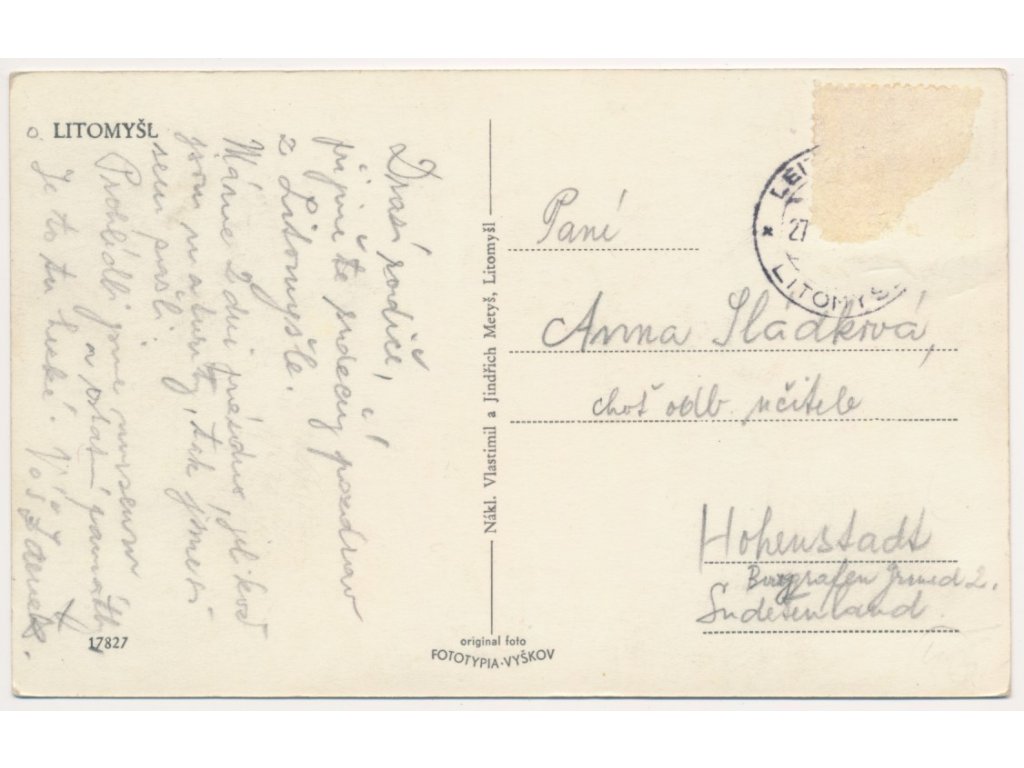 LITOMYŠL
Drazí rodiče,
přijměte srdečný pozdrav
z Litomyšle.
Máme 2 dni prázdno, jelikož
jsou maturity, tak jsme si
sem zašli.
Prohlédli jsme museum
a ostatní památky
Je to tu hezké. Váš Zdeněk.
17827
Nákl. Vlastimil a Jindřich Metyš, Litomyšl
original foto
FOTOTYPIA-VYŠKOV
LEIT
27
LITOMYŠ
Paní
Anna Sládková,
choť odb. učitele
Hohenstadt
Burggrafen 2.
Sudetenland